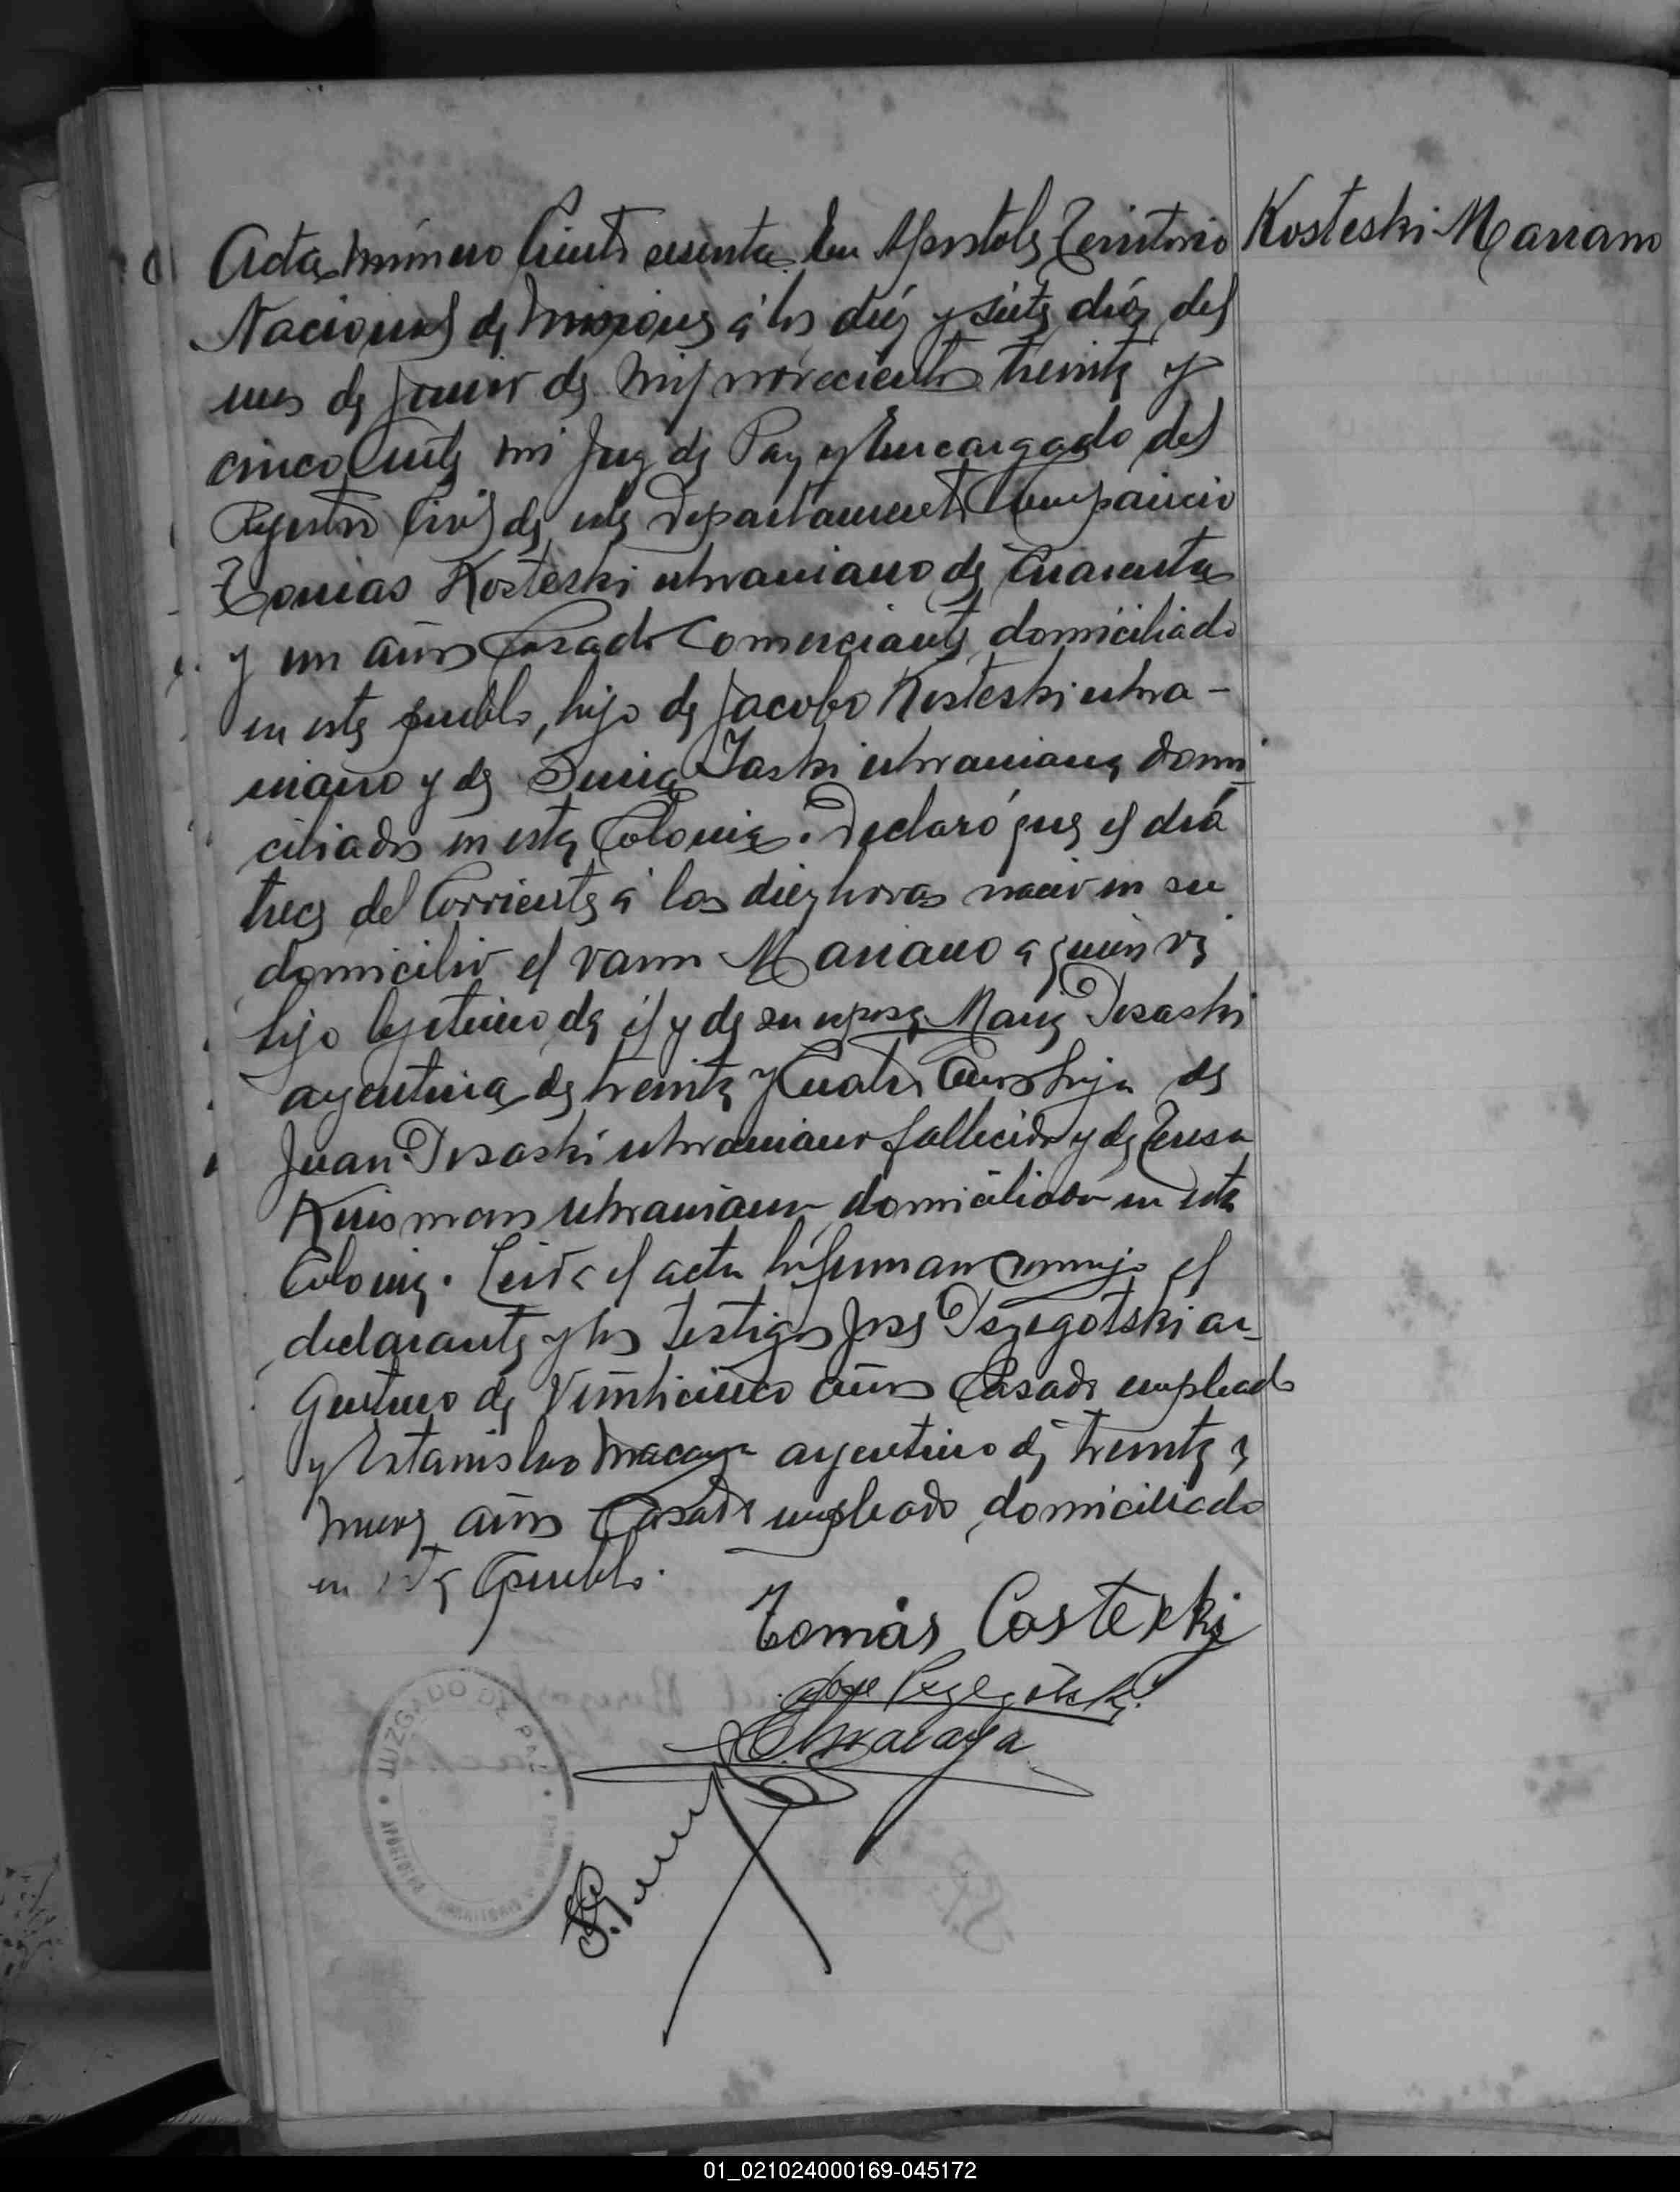 Kosteski Mariano
Acta número Ciento sesenta. En Apostoles Territorio
Nacional de Misiones á los diez y siete días del
mes de Junio de mil novecientos treinta y
cinco Ante mi Juez de Paz y Encargado del
Registro Civil de este Departamento Compareció
Tomas Kosteski ukraniano de Cuarenta
y un años Casado Comerciante domiciliado
en este pueblo, hijo de Jacobo Kosteski ukra-
niano y de Jaski ukraniana, domi
ciliados en esta Colonia. Declaró que el día
trece del Corriente á las diez horas nació en su
domicilio el varon Mariano a quien vi
hijo lejitimo de él y de su esposa Maria Desaski
argentina de treinta y Cuatro años hija de
Juan Desaski ukraniano fallecido y de Teresa
ukraniana domiciliada en esta
Colonia. Leida el acta la firman conmigo el
declarante y los testigos José Pszegotski ar-
gentino de Veinticinco años Casado empleado
y Estanislao Macaya argentino de treinta y
nueve años Casado empleado domiciliado
en este pueblo.
Tomás Costexki
Jose
E Macaya
JUZGADO DE PAZ
APOSTOLES
01_021024000169-045172